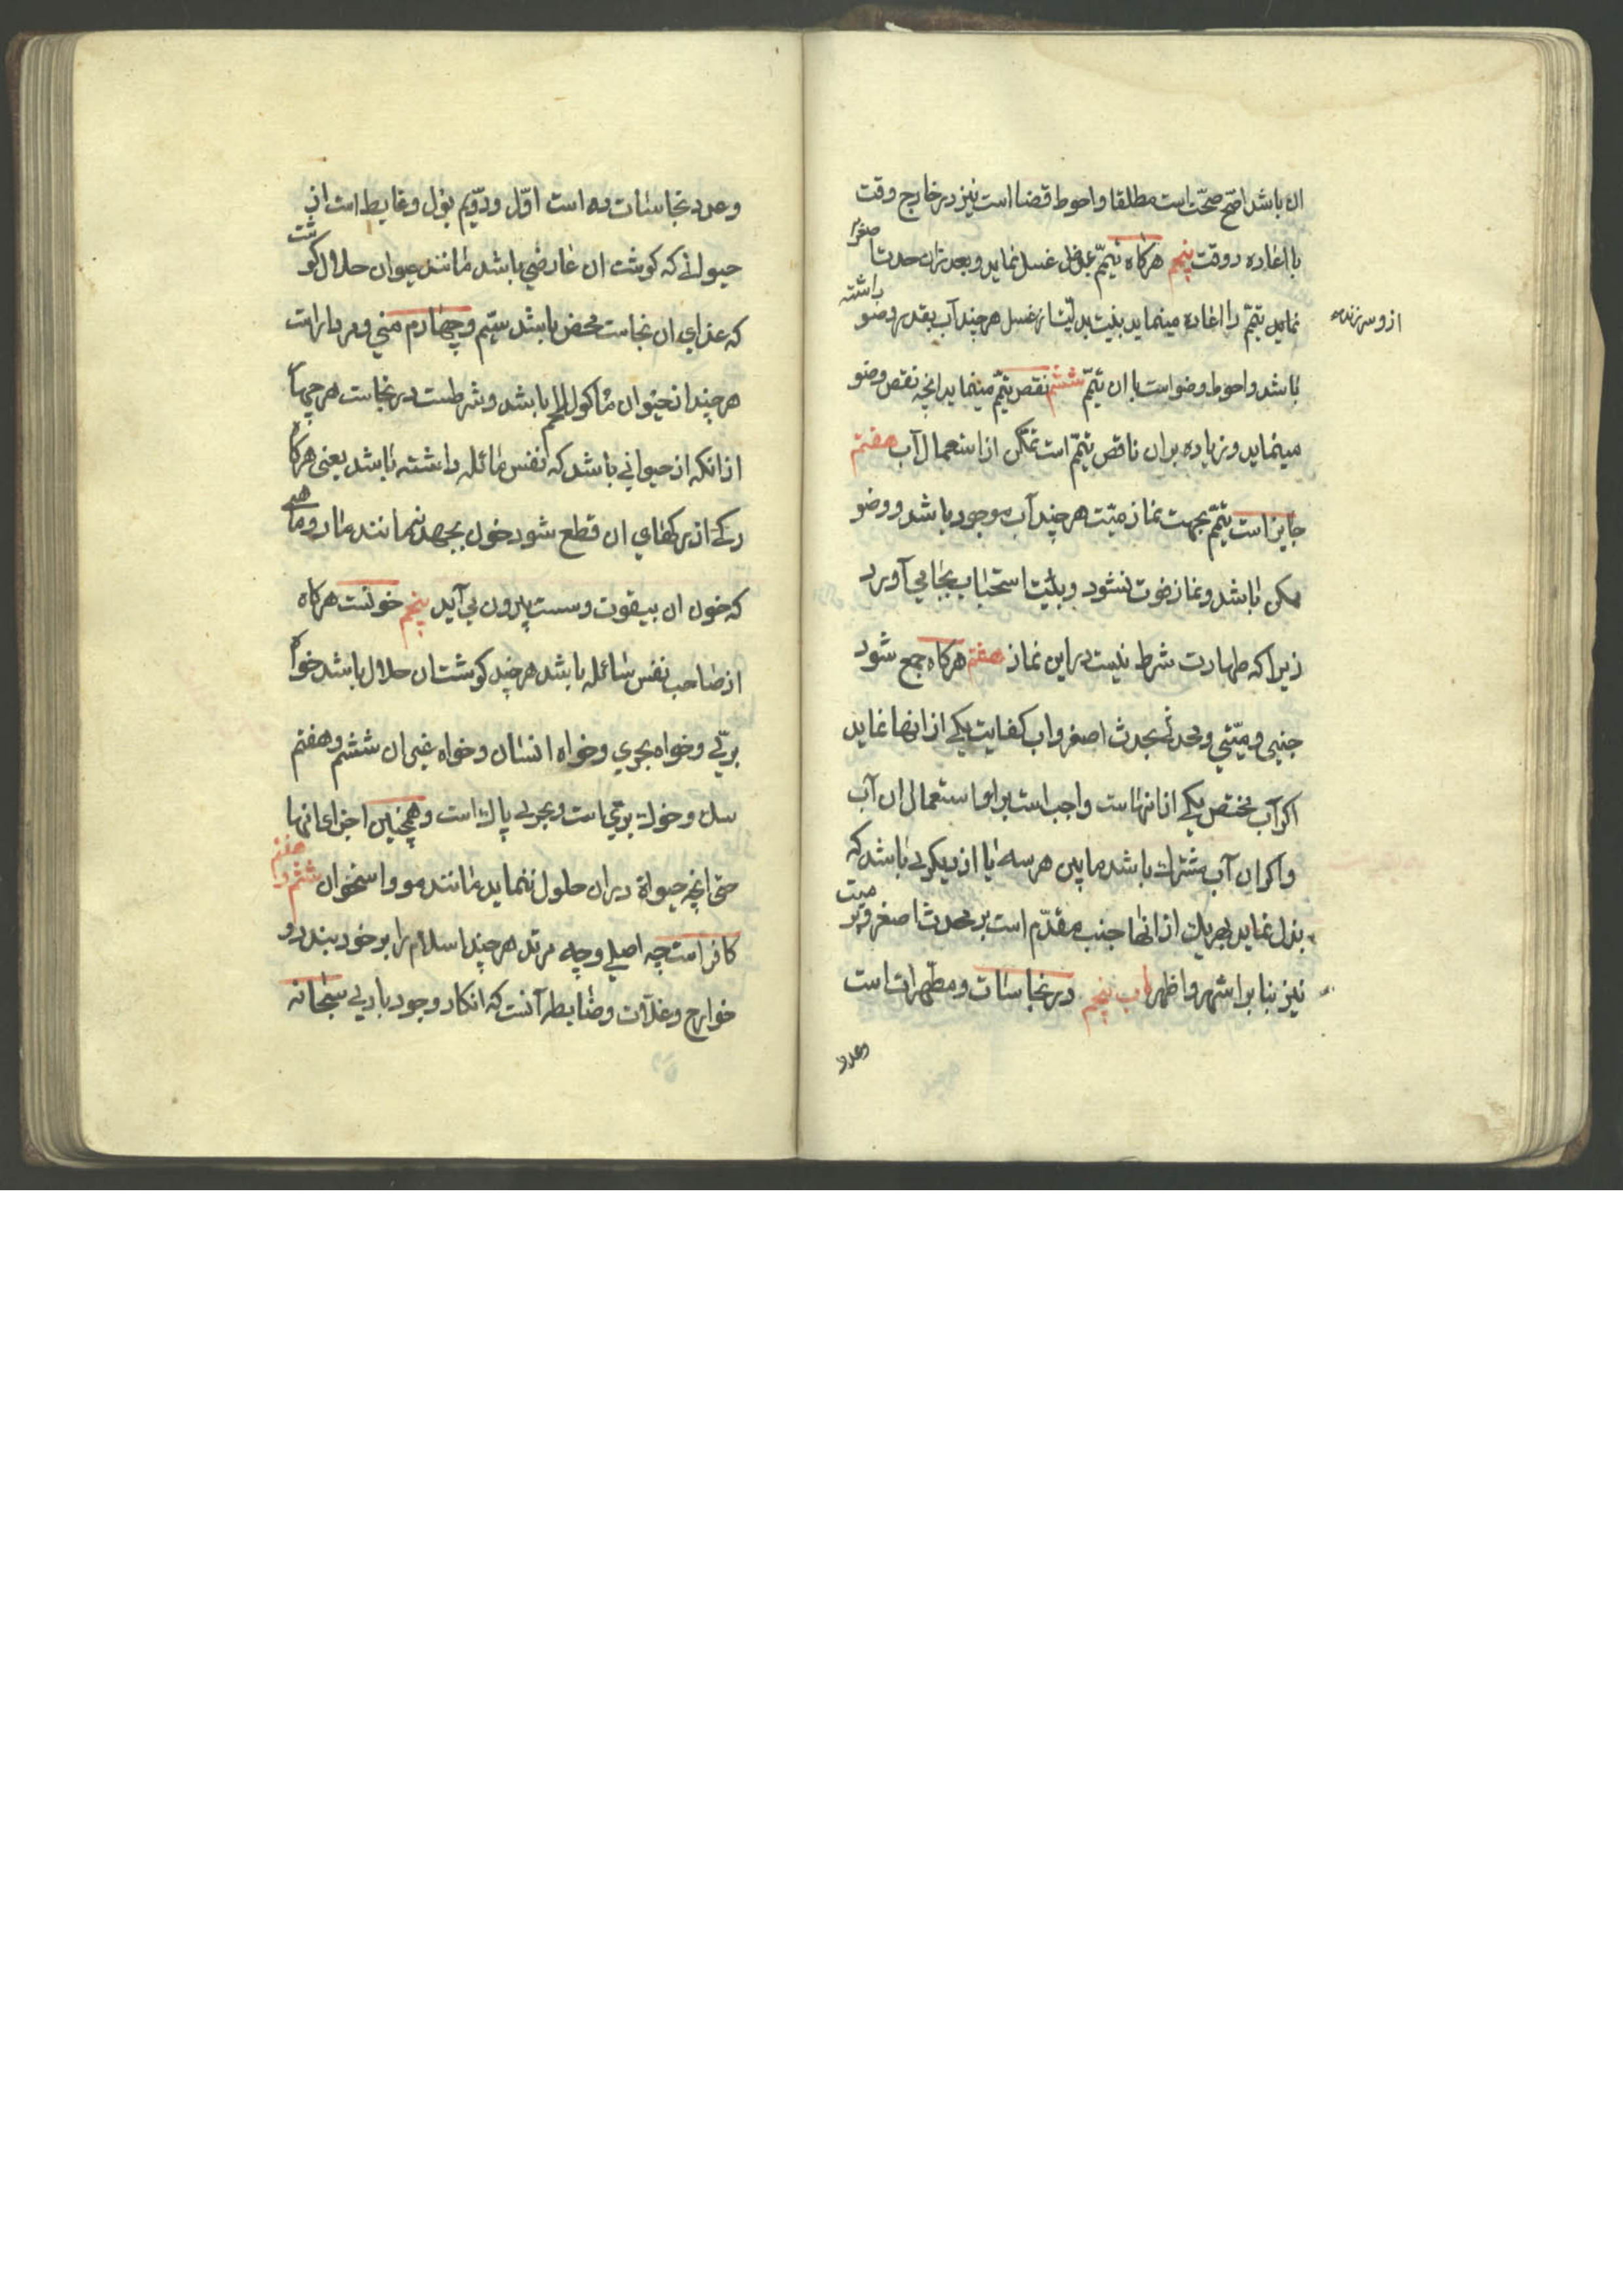 ان باشد اصّح صحّت است مطلقا و احوط قضا است نیز در خارج وقت
با اعاده در وقت پنجم هرکاه تیمّم بدل غسل نماید و بعد از ان حدث اصغر
نماید تیمّم را اعاده مینماید بنیت بدلیّت از غسل هر چند آب بقدر وضو داشته
از و سر زنده
باشد و احوط وضو است با ان تیمّم ششم نقص تیمّم مینماید انچه نقص وضو
مینماید و زیاده بران ناقص تیمّم است تمکّن از استعمال آب هفتم
جایز است تیمّم بجهت نماز میّت هر چند آب موجود باشد و وضو
ممکن باشد و نماز فوت نشود و بنیّت استحباب بجا می آورد
زیرا که طهارت شرط نیست در این نماز هفتم هرکاه جمع شود
جنبی و میّتی و محدثی بحدث اصغر و اب کفایت یکی از انها نماید
اکر آب مختص یکی از انهاست واجب است بر او استعمال ان آب
و اکر ان آب مشترك باشد مابین هر سه یا از دیکری باشد که
بذل نماید بهریك از انها جنب مقدّم است بر محدث اصغر و بر میت
نیز بنا بر اشهر و اظهر باب پنجم در نجاسات و مطهرات است
و عدد
و عدد نجاسات ده است اوّل و دوّیم بول و غایط است از
حیوانی که کوشت ان عارضی باشد مانند حیوان حلال کوشت
که غذای ان نجاست محض باشد سیّم و چهارم منی و مردار است
هر چند از حیوان ماکول اللحم باشد و شرطست در نجاست هر چهار
از انکه از حیوانی باشد که نفس سائله داشته باشد یعنی هرکاه
رکی از رکهای ان قطع شود خون بجهد نه مانند مار و ماهی
که خون ان بیقوت و سست بیرون می آید پنجم خونست هرکاه
از صاحب نفس سائله باشد هر چند کوشت ان حلال باشد خواه
برّی و خواه بحری و خواه انسان و خواه غیر ان ششم و هفتم
سك و خوك برّی است و بحری پاك است و همچنین اجزای انها
حتی انچه حیوة در ان حلول ننماید مانند مو و اسخوان هشتم
کافر است چه اصلی و چه مرتد هر چند اسلام را بر خود بندد و
خوارج و غلات و ضابطه آنست که انکار وجود باری سبحانه